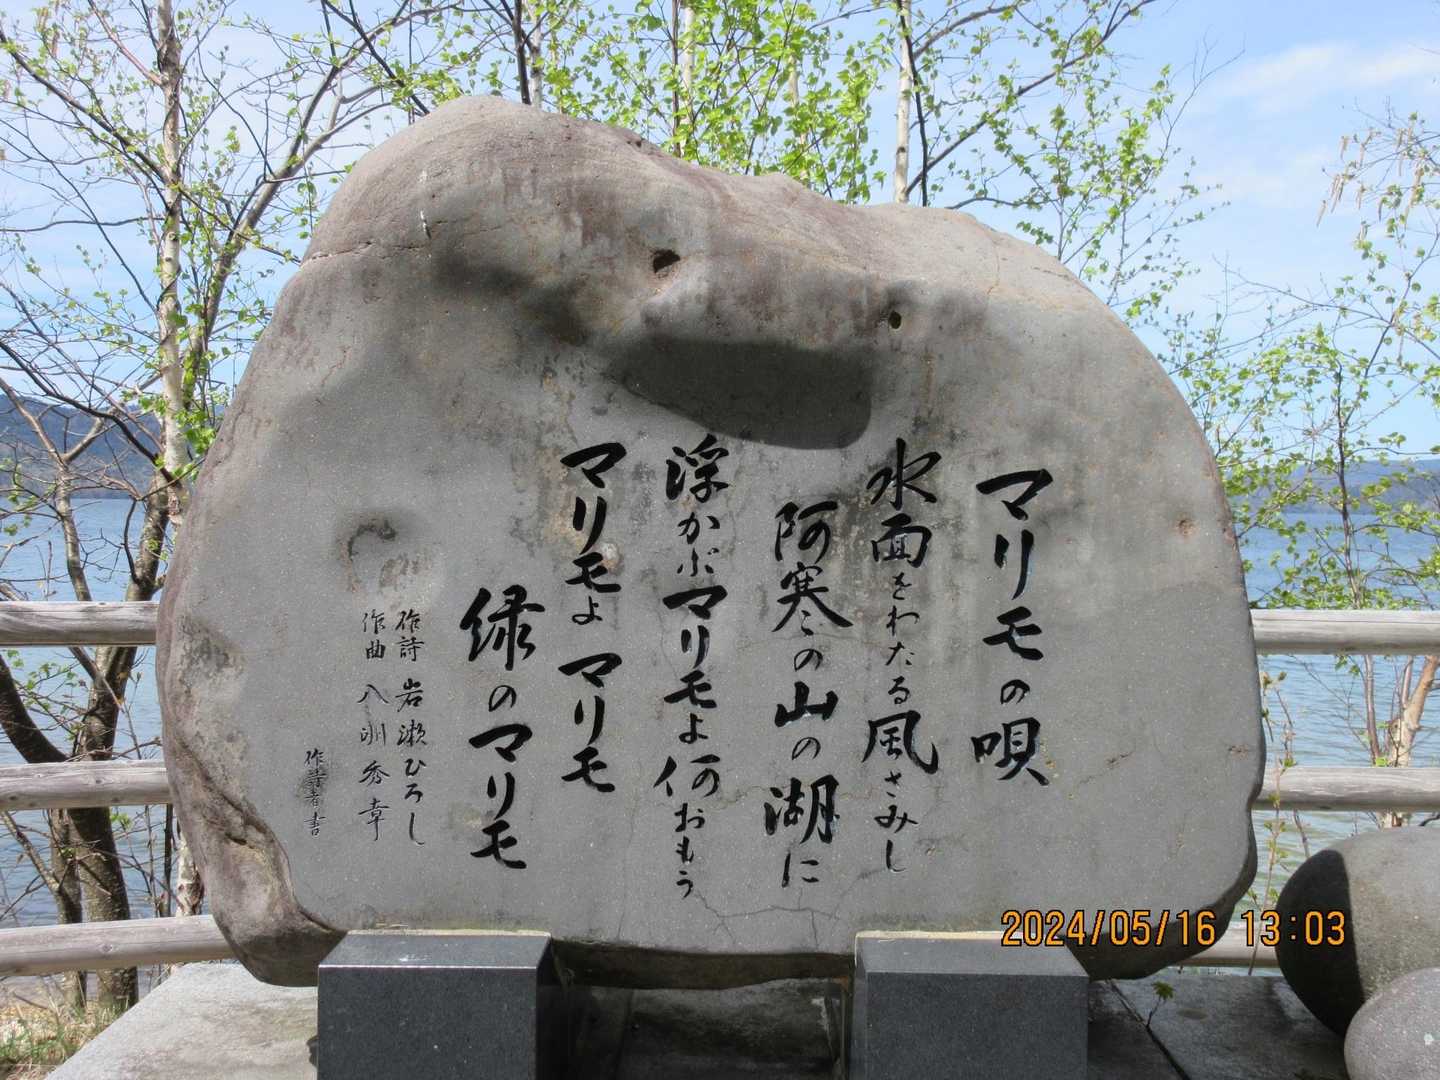 マリモの唄
水面をわたる風さみし
阿寒の山の湖に
浮かぶマリモよ何おもう
マリモよマリモ
緑のマリモ
作詩 岩瀬ひろし
作曲 八洲秀章
作詩者書
2024/05/16 13:03